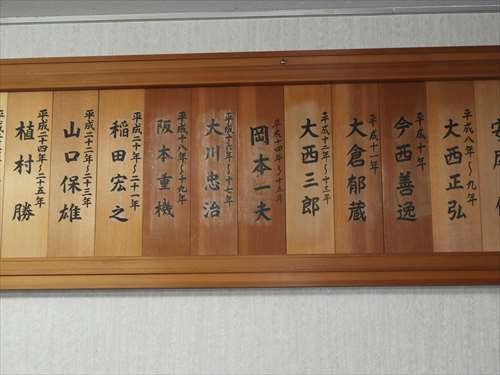 平成八年～九年
大西正弘
平成十年
今西善逸
平成十一年
大倉郁蔵
平成十二年～十三年
大西三郎
平成十四年～十五年
岡本一夫
平成十六年～十七年
大川忠治
平成十八年～十九年
阪本重機
平成二十年～二十一年
稲田宏之
平成二十二年～二十三年
山口保雄
平成二十四年～二十五年
植村勝